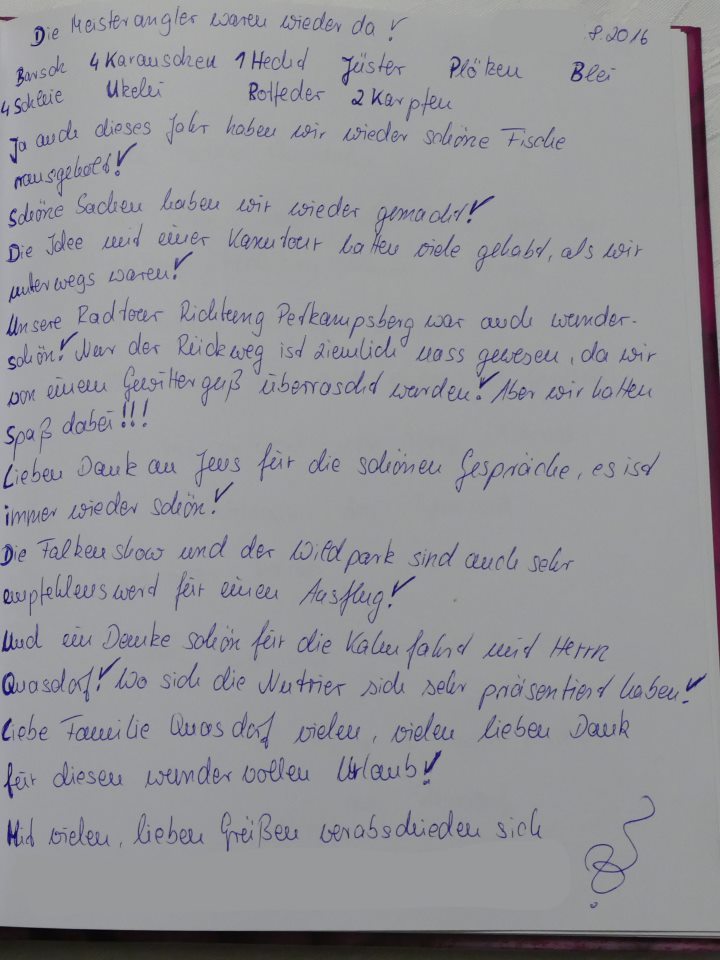 Die Meisterangler waren wieder da!
8.2016
Barsch 4 Karauschen 1 Hecht Jüster Plötzen Blei
4 Schleie Ukelei Rotfeder 2 Karpfen
Ja auch dieses Jahr haben wir wieder schöne Fische
rausgeholt!
Schöne Sachen haben wir wieder gemacht!
Die Idee mit einer Kanutour hatten viele gehabt, als wir
unterwegs waren!
Unsere Radtour Richtung Petkampsberg war auch wunder-
schön! Nur der Rückweg ist ziemlich nass gewesen, da wir
von einem Gewitterguß überrascht wurden! Aber wir hatten
Spaß dabei!!!
Lieben Dank an Jens für die schönen Gespräche, es ist
immer wieder schön!
Die Falkenshow und der Wildpark sind auch sehr
empfehlenswert für einen Ausflug!
Und ein Danke schön für die Kahnfahrt mit Herrn
Quasdorf! Wo sich die Nutrier sich sehr präsentiert haben!
Liebe Familie Quasdorf vielen, vielen lieben Dank
für diesen wundervollen Urlaub!
Mit vielen, lieben Grüßen verabschieden sich